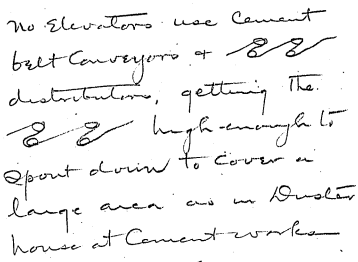 No Elevators use Cement
belt Conveyors &
distributors, getting the
high enough to
spout down to cover a
large area as in Duster
house at Cement works